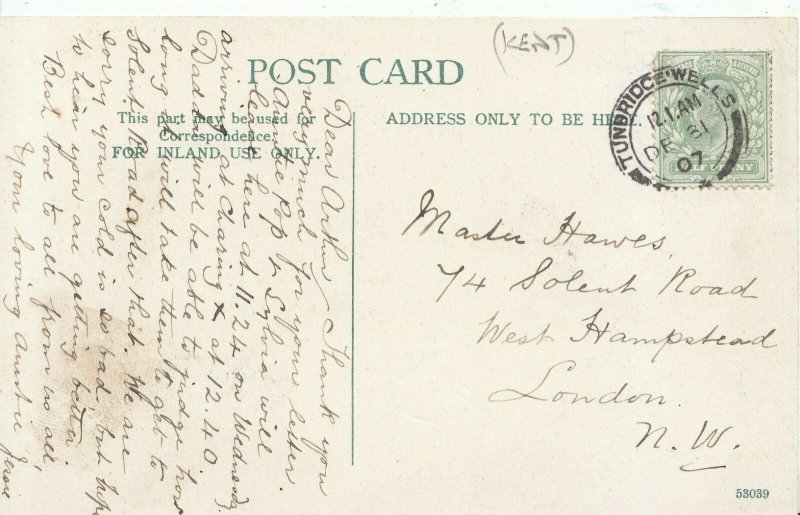 (KENT)
POST CARD
This part may be used for
Correspondence.
FOR INLAND USE ONLY.
ADDRESS ONLY TO BE HERE.
TUNBRIDGE WELLS
12.1.AM
DE 31
07
Dear Arthur, Thank you
very much for your letter.
Auntie Pop & Sylvia will
leave here at 11.24 on Wednesday
arriving at Charing X at 12.40
Daddy will be able to judge how
long it will take them to get to
Solent Road after that. We are
sorry your cold is so bad, but hope
to hear you are getting better
Best love to all from us all,
Your loving Auntie
Master Hawes,
74 Solent Road
West Hampstead
London.
N.W.
53039